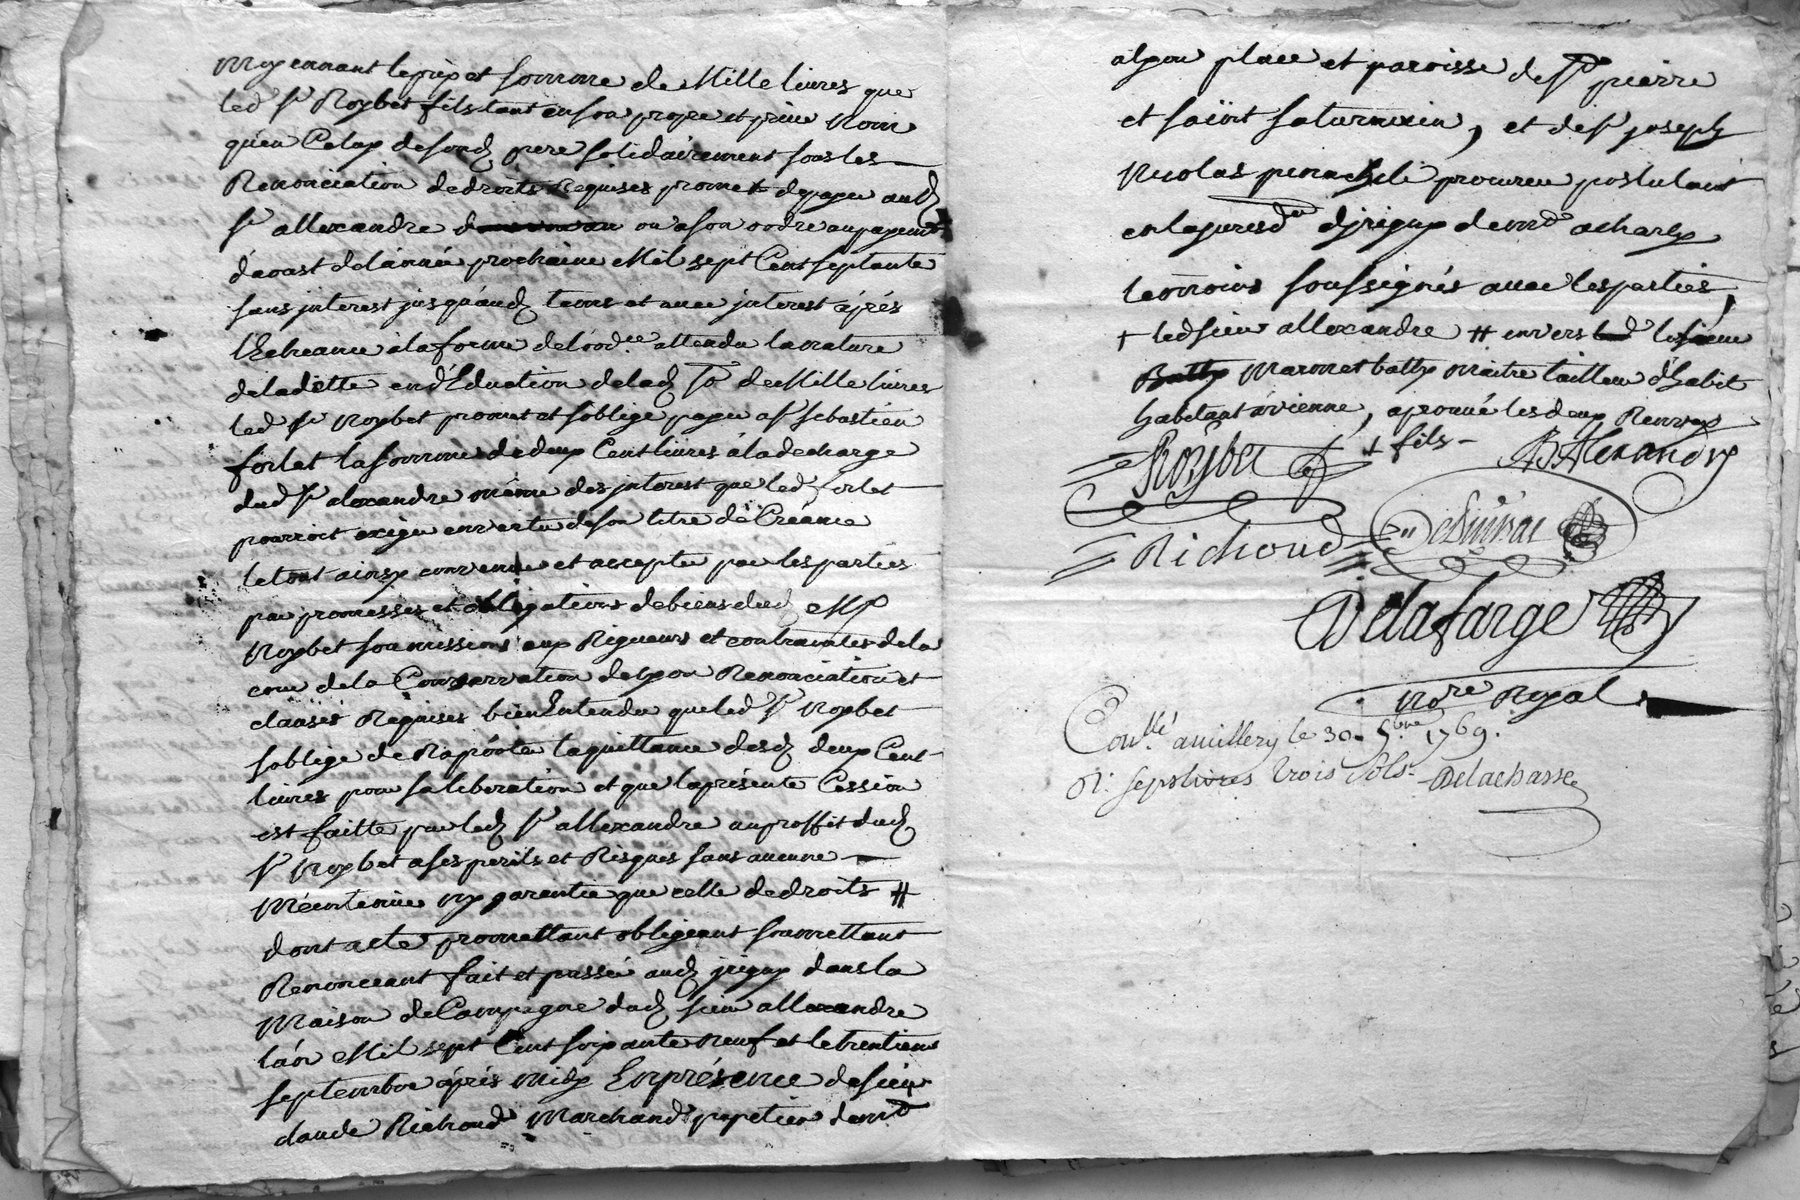 Moyennant le prix et somme de Mille livres que
led. Sr Roybet fils tant en son propre et privé Nom
qu'en Celuy de sond. pere solidairement sous les
Renonciation de droits Requises promet de payer aud.
Sr allexandre ou a son ordre au payemt
daoust de lánnée prochaine Mil sept Cent septante
sans jnterest jusquáud. tems et avec jnterest áprés
l'Echeance a la forme de lordce attendu la nature
de la dette en déduction de lad. so. de Mille livres
led. Sr Roybet promet et soblige payer a Sr sebastien
forlet la somme de deux Cent livres á la decharge
dud. Sr alexandre méme des jnterest que led. forlet
pourroit exiger en vertu de son titre de Créance
le tout ainsy convenu et accepté par les parties
par promesses et obligations de biens dud.
Roybet soumissions aux Rigueurs et contraintes de la
cour de la Conservation de Lyon Renonciation et
clauses Requises bien Entendu que led. Sr Roybet
soblige de Raporter la quittance desd. deux Cent
livres pour sa liberation et que la présente Cession
est faitte par led. Sr allexandre au proffit dud.
Sr Roybet a ses perils et Risques sans aucune
Méintenüe ny garentie que celle de droits #
dont acte promettant obligeant soumettant
Renonceant fait et passé aud. jrigny dans la
Maison de Campagne dud. sieur allexandre
lán Mil sept Cent soixante neuf et le trentieme
septembre áprés midy En présence de sieur
claude Richoud Marchand papetier demt
a lyon place et paroisse de St pierre
et saint saturnin, et de Sr joseph
Nicolas procureur postulant
en la juresdon djrigny demt a charly
temoins soussignés avec les parties,
+ led sieur allexandre # envers le sieur
Batty maitre tailleur d'habit
habitant á vienne, aprouvé les deux Renvoys
Roÿbet + fils - AB Alexandre
Richoud
Delafarge
Nore Royal
Conllé a millery le 30. 7.bre 1769.
R. sept livres trois sols. Delachasse